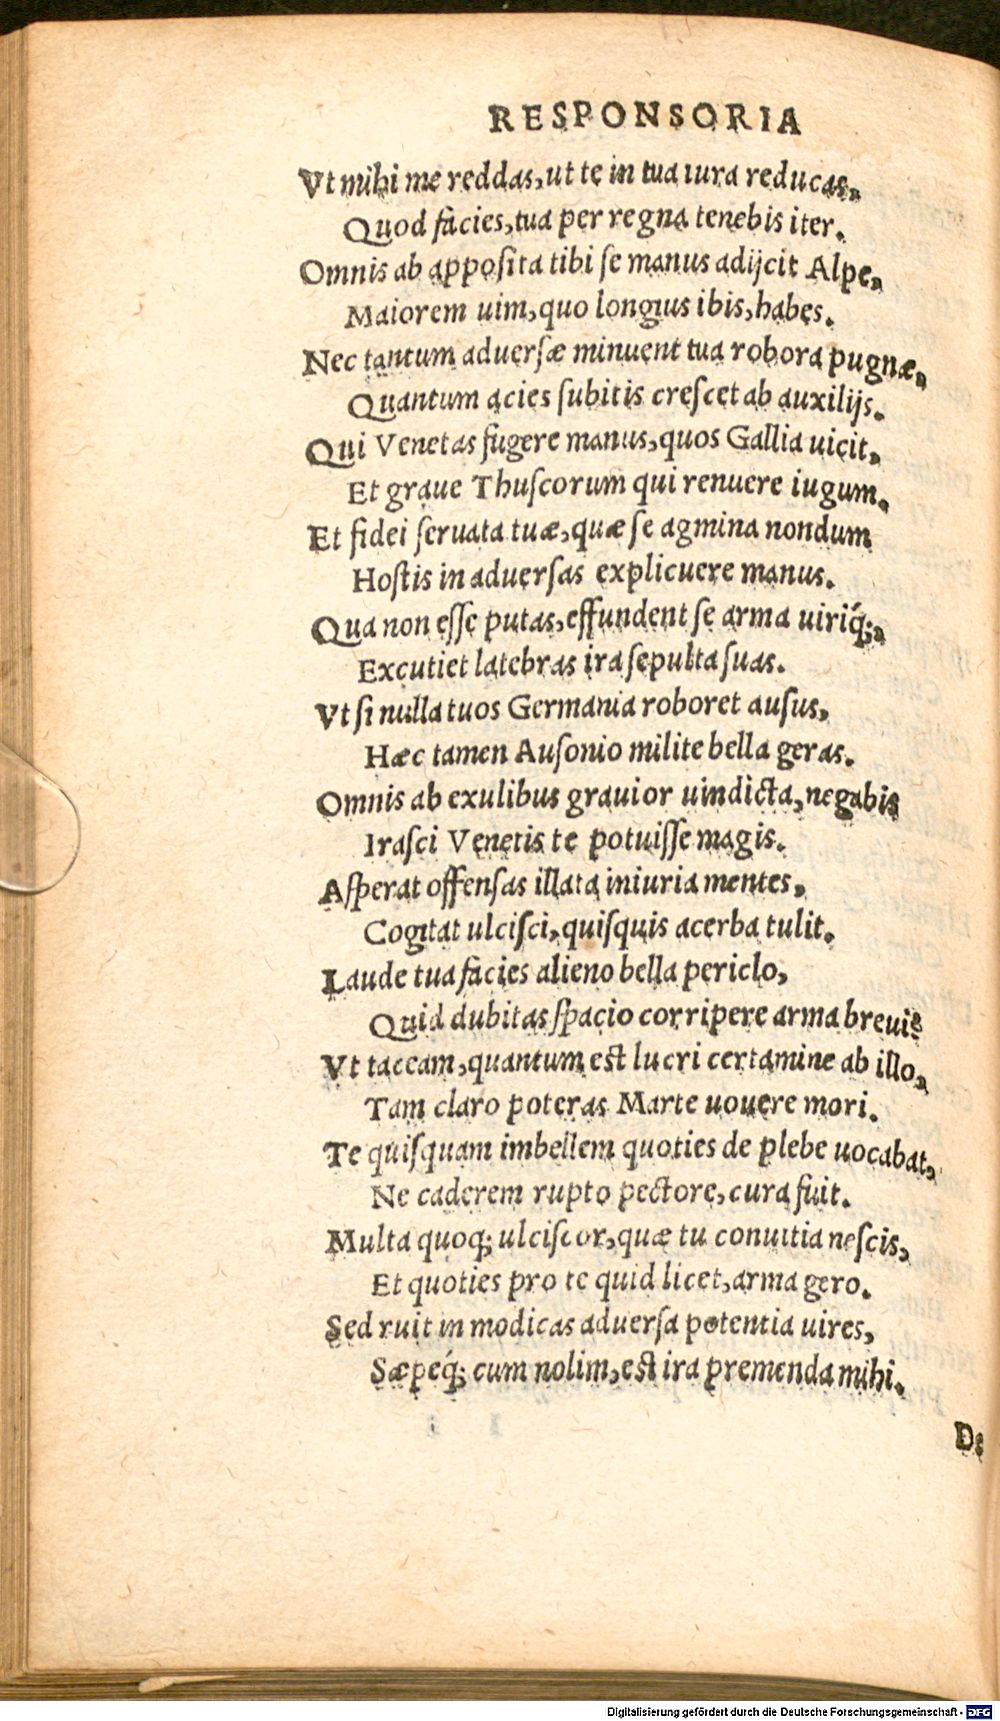 RESPONSORIA
Vt mihi me reddas, ut te in tua iura reducas,
Quod facies, tua per regna tenebis iter.
Omnis ab apposita tibi se manus adijcit Alpe,
Maiorem uim, quo longius ibis, habes.
Nec tantum aduersæ minuent tua robora pugnæ,
Quantum acies subitis crescet ab auxilijs.
Qui Venetas fugere manus, quos Gallia uicit,
Et graue Thuscorum qui renuere iugum,
Et fidei seruata tuæ, quæ se agmina nondum
Hostis in aduersas explicuere manus.
Qua non esse putas, effundent se arma uiriq́;,
Excutiet latebras ira sepulta suas.
Vt si nulla tuos Germania roboret ausus,
Hæc tamen Ausonio milite bella geras.
Omnis ab exulibus grauior uindicta, negabis
Irasci Venetis te potuisse magis.
Asperat offensas illata iniuria mentes,
Cogitat ulcisci, quisquis acerba tulit.
Laude tua facies alieno bella periclo,
Quid dubitas spacio corripere arma breui?
Vt taceam, quantum est lucri certamine ab illo,
Tam claro poteras Marte uouere mori.
Te quisquam imbellem quoties de plebe uocabat,
Ne caderem rupto pectore, cura fuit.
Multa quoq; ulciscor, quæ tu conuitia nescis,
Et quoties pro te quid licet, arma gero.
Sed ruit in modicas aduersa potentia uires,
Sæpeq́; cum nolim, est ira premenda mihi.
De
Digitalisierung gefördert durch die Deutsche Forschungsgemeinschaft - DFG